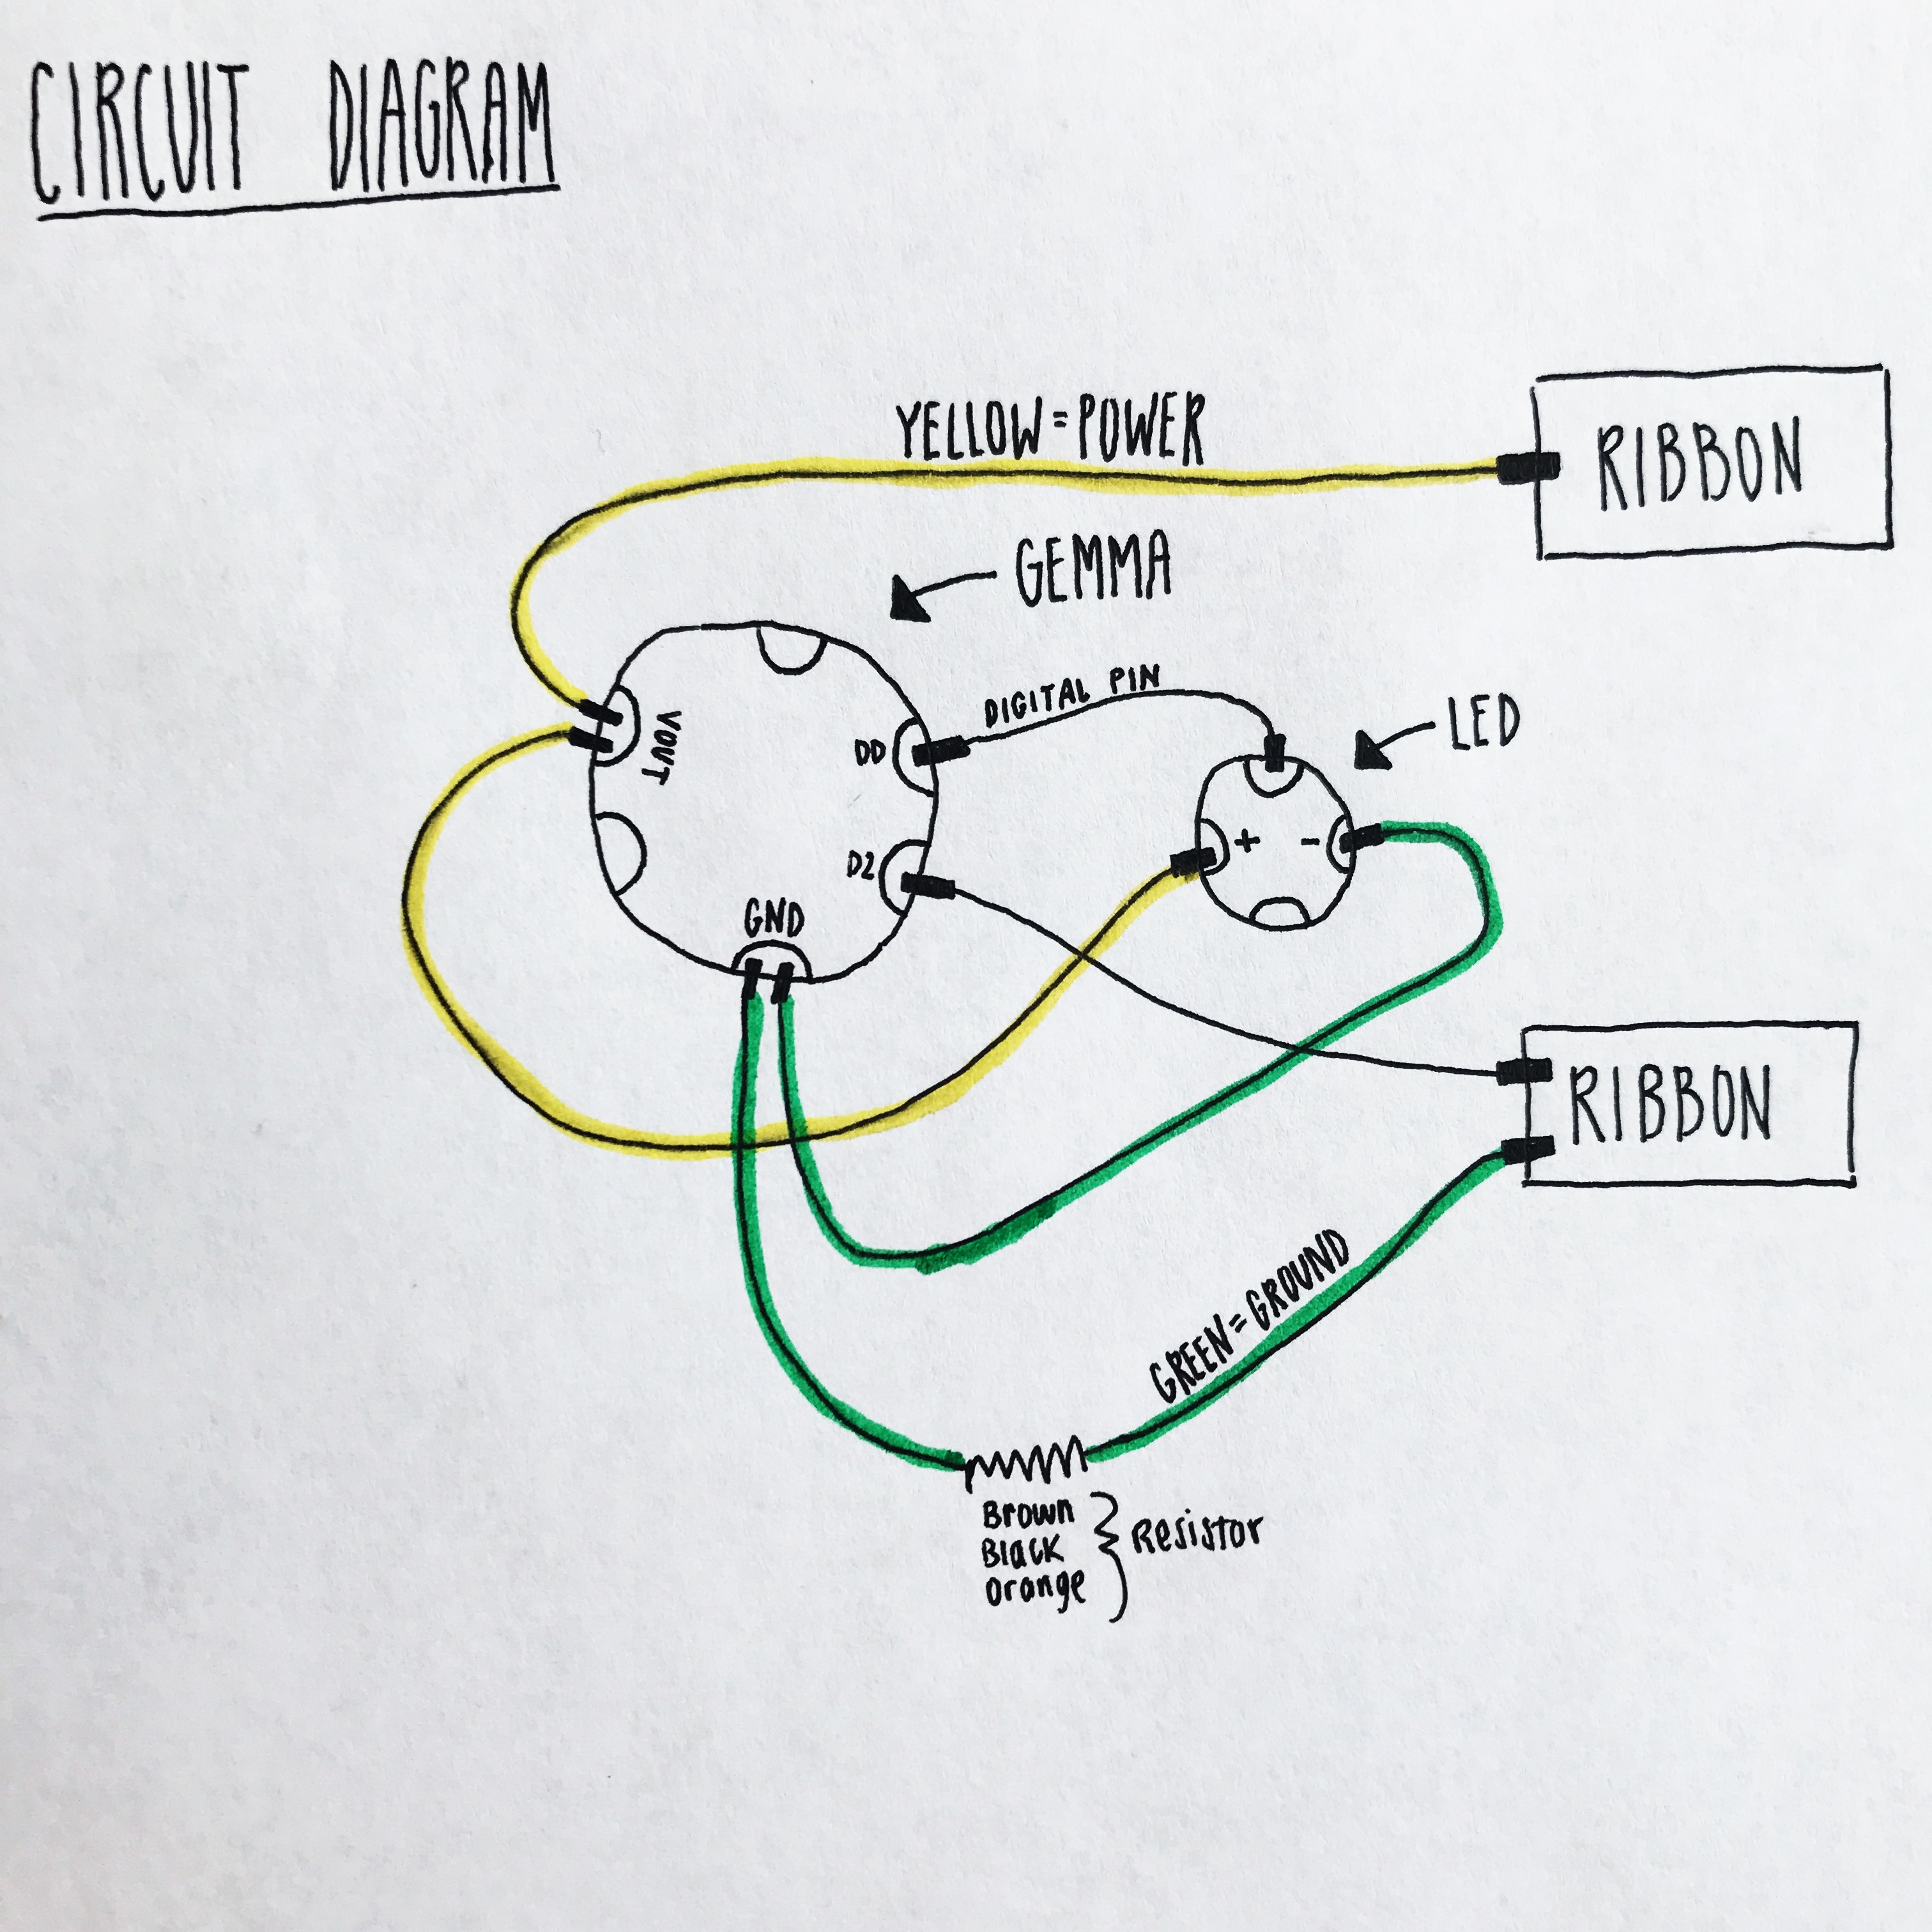 CIRCUIT DIAGRAM
YELLOW = POWER
RIBBON
GEMMA
DIGITAL PIN
LED
VOUT
DD
+ -
D2
GND
RIBBON
GREEN = GROUND
Brown
Black
Orange
Resistor